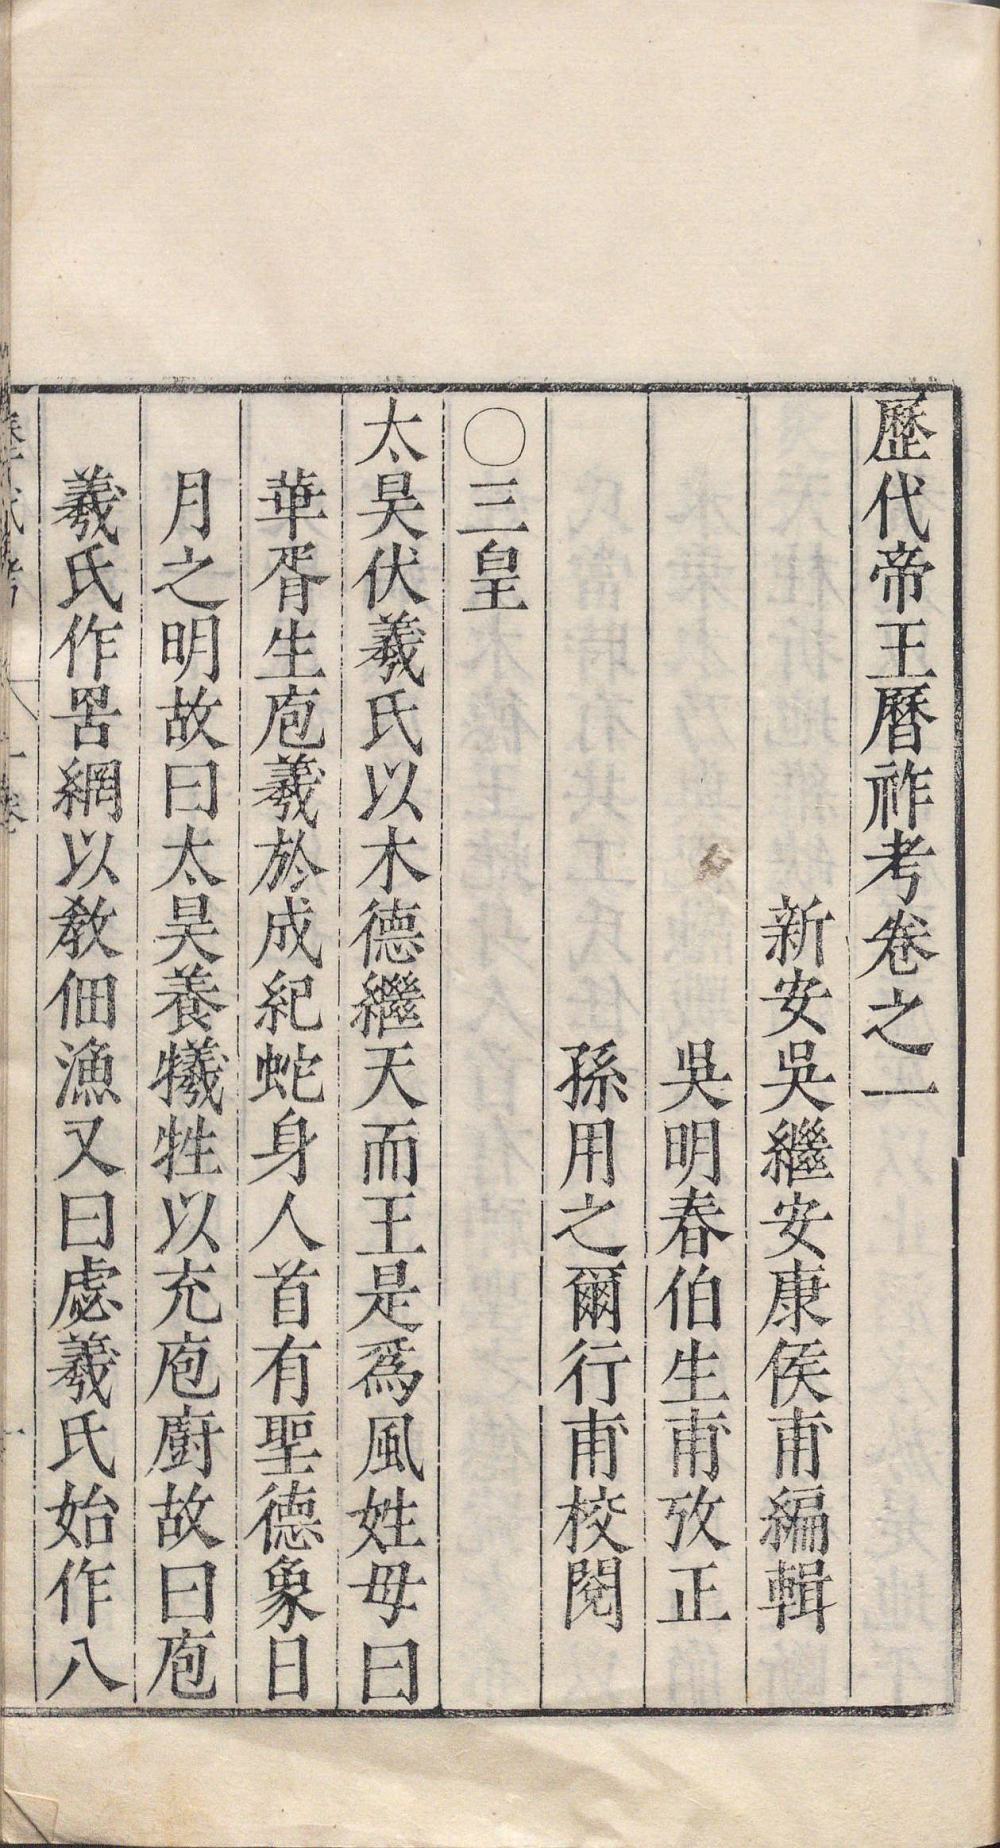 歷代帝王曆祚考卷之一
新安吳繼安康侯甫編輯
吳明春伯生甫攷正
孫用之爾行甫校閱
〇三皇
太昊伏羲氏以木德繼天而王是爲風姓母曰
華胥生庖羲於成紀蛇身人首有聖德象日
月之明故曰太昊養犧牲以充庖廚故曰庖
羲氏作罟網以敎佃漁又曰慮羲氏始作八